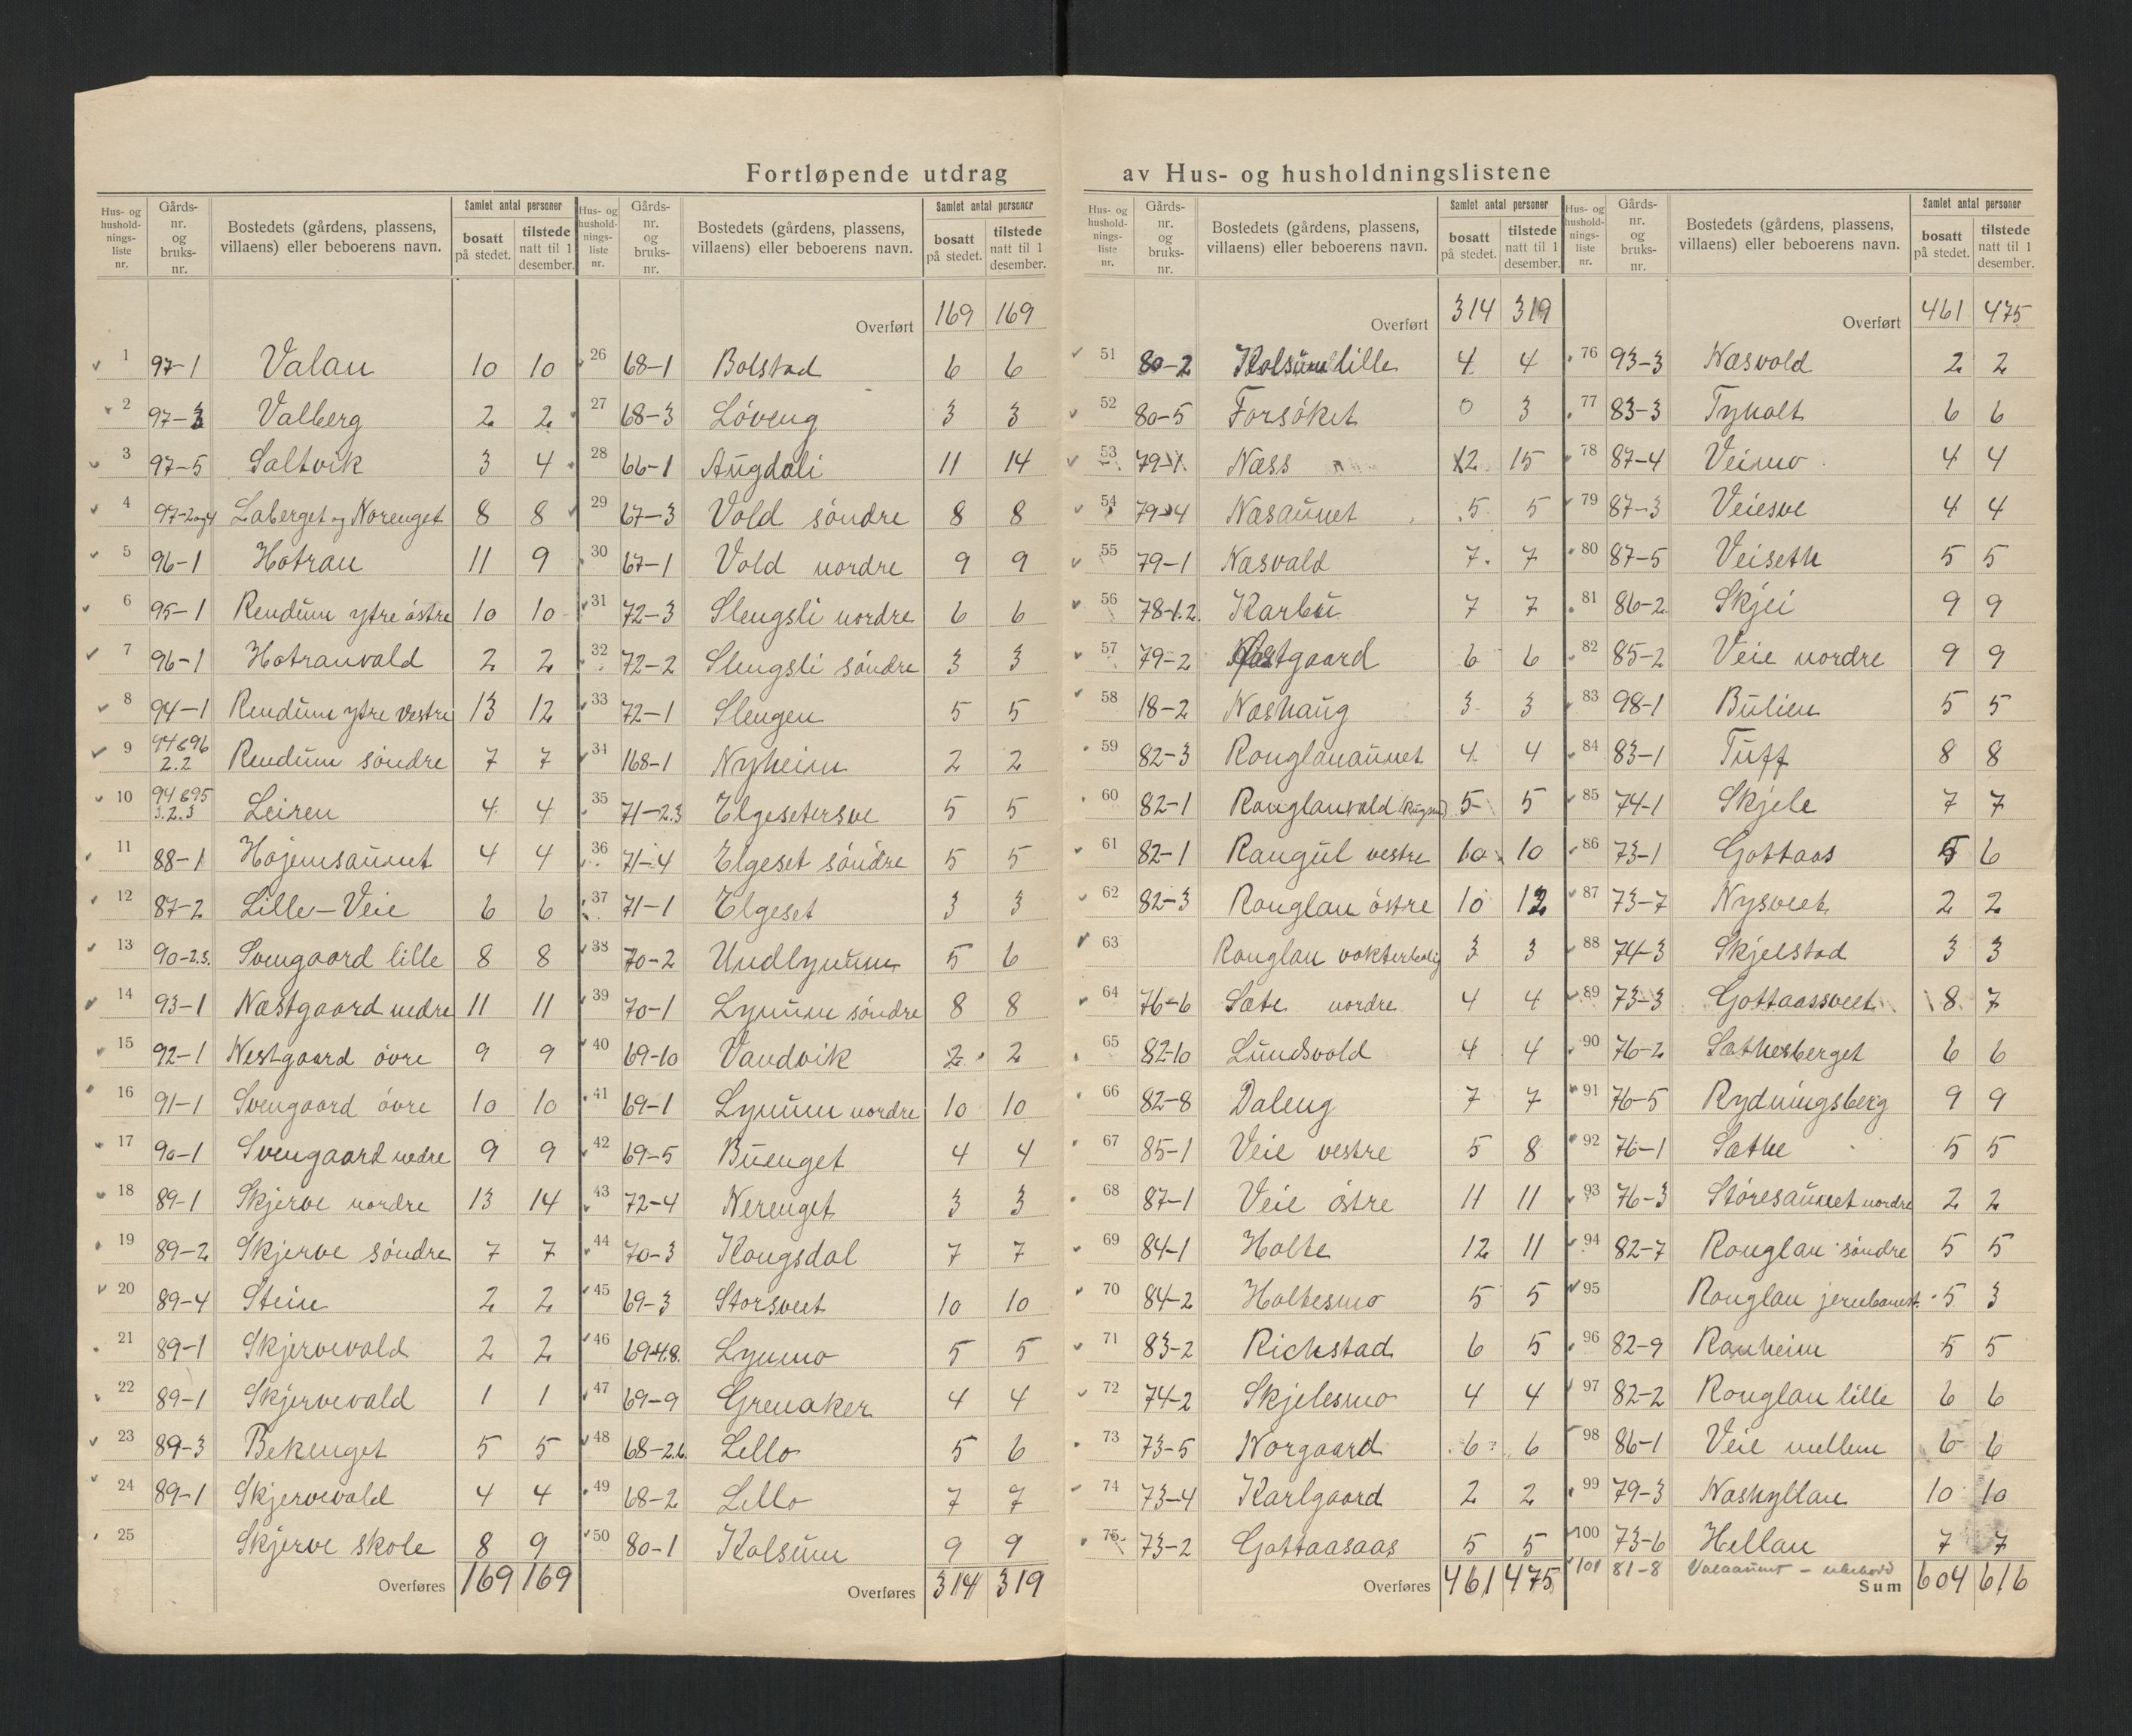 Fortløpende utdrag av Hus- og husholdningslistene
Hus- og hushold-nings-liste nr. | Gårds-nr. og bruks-nr. | Bostedets (gårdens, plassens, villaens) eller beboerens navn. | Samlet antal personer | bosatt på stedet. | tilstede natt til 1 desember.
1 97-1 Valan 10 10
2 97-3 Valberg 2 2
3 97-5 Saltvik 3 4
4 97-2og4 Laberget og Norenget 8 8
5 96-1 Hotran 11 9
6 95-1 Rendum ytre østre 10 10
7 96-1 Hotranvald 2 2
8 94-1 Rendum ytre vestre 13 12
9 94&96 2.2 Rendum søndre 7 7
10 94&95 3.2.3 Leiren 4 4
11 88-1 Hojemsaunet 4 4
12 87-2 Lille-Veie 6 6
13 90-2.3. Svengaard lille 8 8
14 93-1 Næstgaard nedre 11 11
15 92-1 Nestgaard øvre 9 9
16 91-1 Svengaard øvre 10 10
17 90-1 Svengaard nedre 9 9
18 89-1 Skjerve nordre 13 14
19 89-2 Skjerve søndre 7 7
20 89-4 Stein 2 2
21 89-1 Skjervevald 2 2
22 89-1 Skjervevald 1 1
23 89-3 Bekenget 5 5
24 89-1 Skjervevald 4 4
25 Skjerve skole 8 9
Overføres 169 169
Hus- og hushold-nings-liste nr. | Gårds-nr. og bruks-nr. | Bostedets (gårdens, plassens, villaens) eller beboerens navn. | Samlet antal personer | bosatt på stedet. | tilstede natt til 1 desember.
Overført 169 169
26 68-1 Bolstad 6 6
27 68-3 Løveng 3 3
28 66-1 Augdali 11 14
29 67-3 Vold søndre 8 8
30 67-1 Vold nordre 9 9
31 72-3 Slengsli nordre 6 6
32 72-2 Slengsli søndre 3 3
33 72-1 Slengen 5 5
34 168-1 Nyheim 2 2
35 71-2.3 Elgesetersve 5 5
36 71-4 Elgeset søndre 5 5
37 71-1 Elgeset 3 3
38 70-2 Undlynum 5 6
39 70-1 Lynum søndre 8 8
40 69-10 Vandvik 2 2
41 69-1 Lynum nordre 10 10
42 69-5 Buenget 4 4
43 72-4 Nerenget 3 3
44 70-3 Kongsdal 7 7
45 69-3 Storsveet 10 10
46 69-4.8. Lynmo 5 5
47 69-9 Grenaker 4 4
48 68-2.6. Lello 5 6
49 68-2 Lello 7 7
50 80-1 Kolsum 9 9
Overføres 314 319
Hus- og hushold-nings-liste nr. | Gårds-nr. og bruks-nr. | Bostedets (gårdens, plassens, villaens) eller beboerens navn. | Samlet antal personer | bosatt på stedet. | tilstede natt til 1 desember.
Overført 314 319
51 80-2 Kolsum lille 4 4
52 80-5 Forsøket 0 3
53 79-1 Næss 12 15
54 79-4 Næsaunet 5 5
55 79-1 Næsvald 7 7
56 78-1.2. Karbu 7 7
57 79-2 6 6
58 18-2 Næshaug 3 3
59 82-3 Ronglanaunet 4 4
60 82-1 Ronglanvald 5 5
61 82-1 Rangul vestre 10 10
62 82-3 Ronglan østre 10 12
63 Ronglan vokterbolig 3 3
64 76-6 Sæte nordre 4 4
65 82-10 Lundsvold 4 4
66 82-8 Daleng 7 7
67 85-1 Veie vestre 5 8
68 87-1 Veie østre 11 11
69 84-1 Holte 12 11
70 84-2 Holtesmo 5 5
71 83-2 Rickstad 6 5
72 74-2 Skjelesmo 4 4
73 73-5 Norgaard 6 6
74 73-4 Karlgaard 2 2
75 73-2 Gottaasaas 5 5
Overføres 461 475
Hus- og hushold-nings-liste nr. | Gårds-nr. og bruks-nr. | Bostedets (gårdens, plassens, villaens) eller beboerens navn. | Samlet antal personer | bosatt på stedet. | tilstede natt til 1 desember.
Overført 461 475
76 93-3 Næsvold 2 2
77 83-3 Tyholt 6 6
78 87-4 Veimo 4 4
79 87-3 Veiesve 4 4
80 87-5 Veiseth 5 5
81 86-2 Skjei 9 9
82 85-2 Veie nordre 9 9
83 98-1 Bulien 5 5
84 83-1 Tuff 8 8
85 74-1 Skjele 7 7
86 73-1 Gottaas 5 6
87 73-7 Nysveet 2 2
88 74-3 Skjelstad 3 3
89 73-3 Gottaassveet 8 7
90 76-2 Sæthesberget 6 6
91 76-5 Rydningsberg 9 9
92 76-1 Sæthe 5 5
93 76-3 Støresaunet nordre 2 2
94 82-7 Ronglan søndre 5 5
95 Ronglan jernbanest. 5 3
96 82-9 Ranheim 5 5
97 82-2 Ronglan lille 6 6
98 86-1 Veie mellem 6 6
99 79-3 Næshyllan 10 10
100 73-6 Hellan 7 7
101 81-8 Valaaunet - ubebodd
Sum 604 616